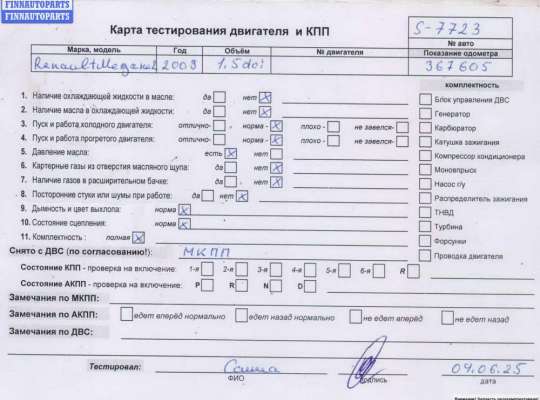 FINNAUTOPARTS
FINNAUTOPARTS
Карта тестирования двигателя и КПП
S-7723
№ авто
Марка, модель Год Объём № двигателя Показание одометра
Renault Megane 2003 1,5dci 367605
комплектность
1. Наличие охлаждающей жидкости в масле: да нет x
2. Наличие масла в охлаждающей жидкости: да нет x
3. Пуск и работа холодного двигателя: отлично- норма - x плохо - не завелся-
4. Пуск и работа прогретого двигателя: отлично- норма - x плохо - не завелся-
5. Давление масла: есть x нет
6. Картерные газы из отверстия масляного щупа: да нет x
7. Наличие газов в расширительном бачке: да нет x
8. Посторонние стуки или шумы при работе: да нет x
9. Дымность и цвет выхлопа: норма x
10. Состояние сцепления: норма x
11. Комплектность : полная x
Блок управления ДВС
Генератор
Карбюратор
Катушка зажигания
Компрессор кондиционера
Моновпрыск
Насос г/у
Распределитель зажигания
ТНВД
Турбина
Форсунки
Проводка двигателя
Снято с ДВС (по согласованию!): МКПП
Состояние КПП - проверка на включение: 1-я 2-я 3-я 4-я 5-я 6-я R
Состояние АКПП - проверка на включение: P R N D
Замечания по МКПП:
Замечания по АКПП: едет вперёд нормально едет назад нормально не едет вперёд не едет назад
Замечания по ДВС:
Тестировал: Саша 09.06.25
ФИО подпись дата